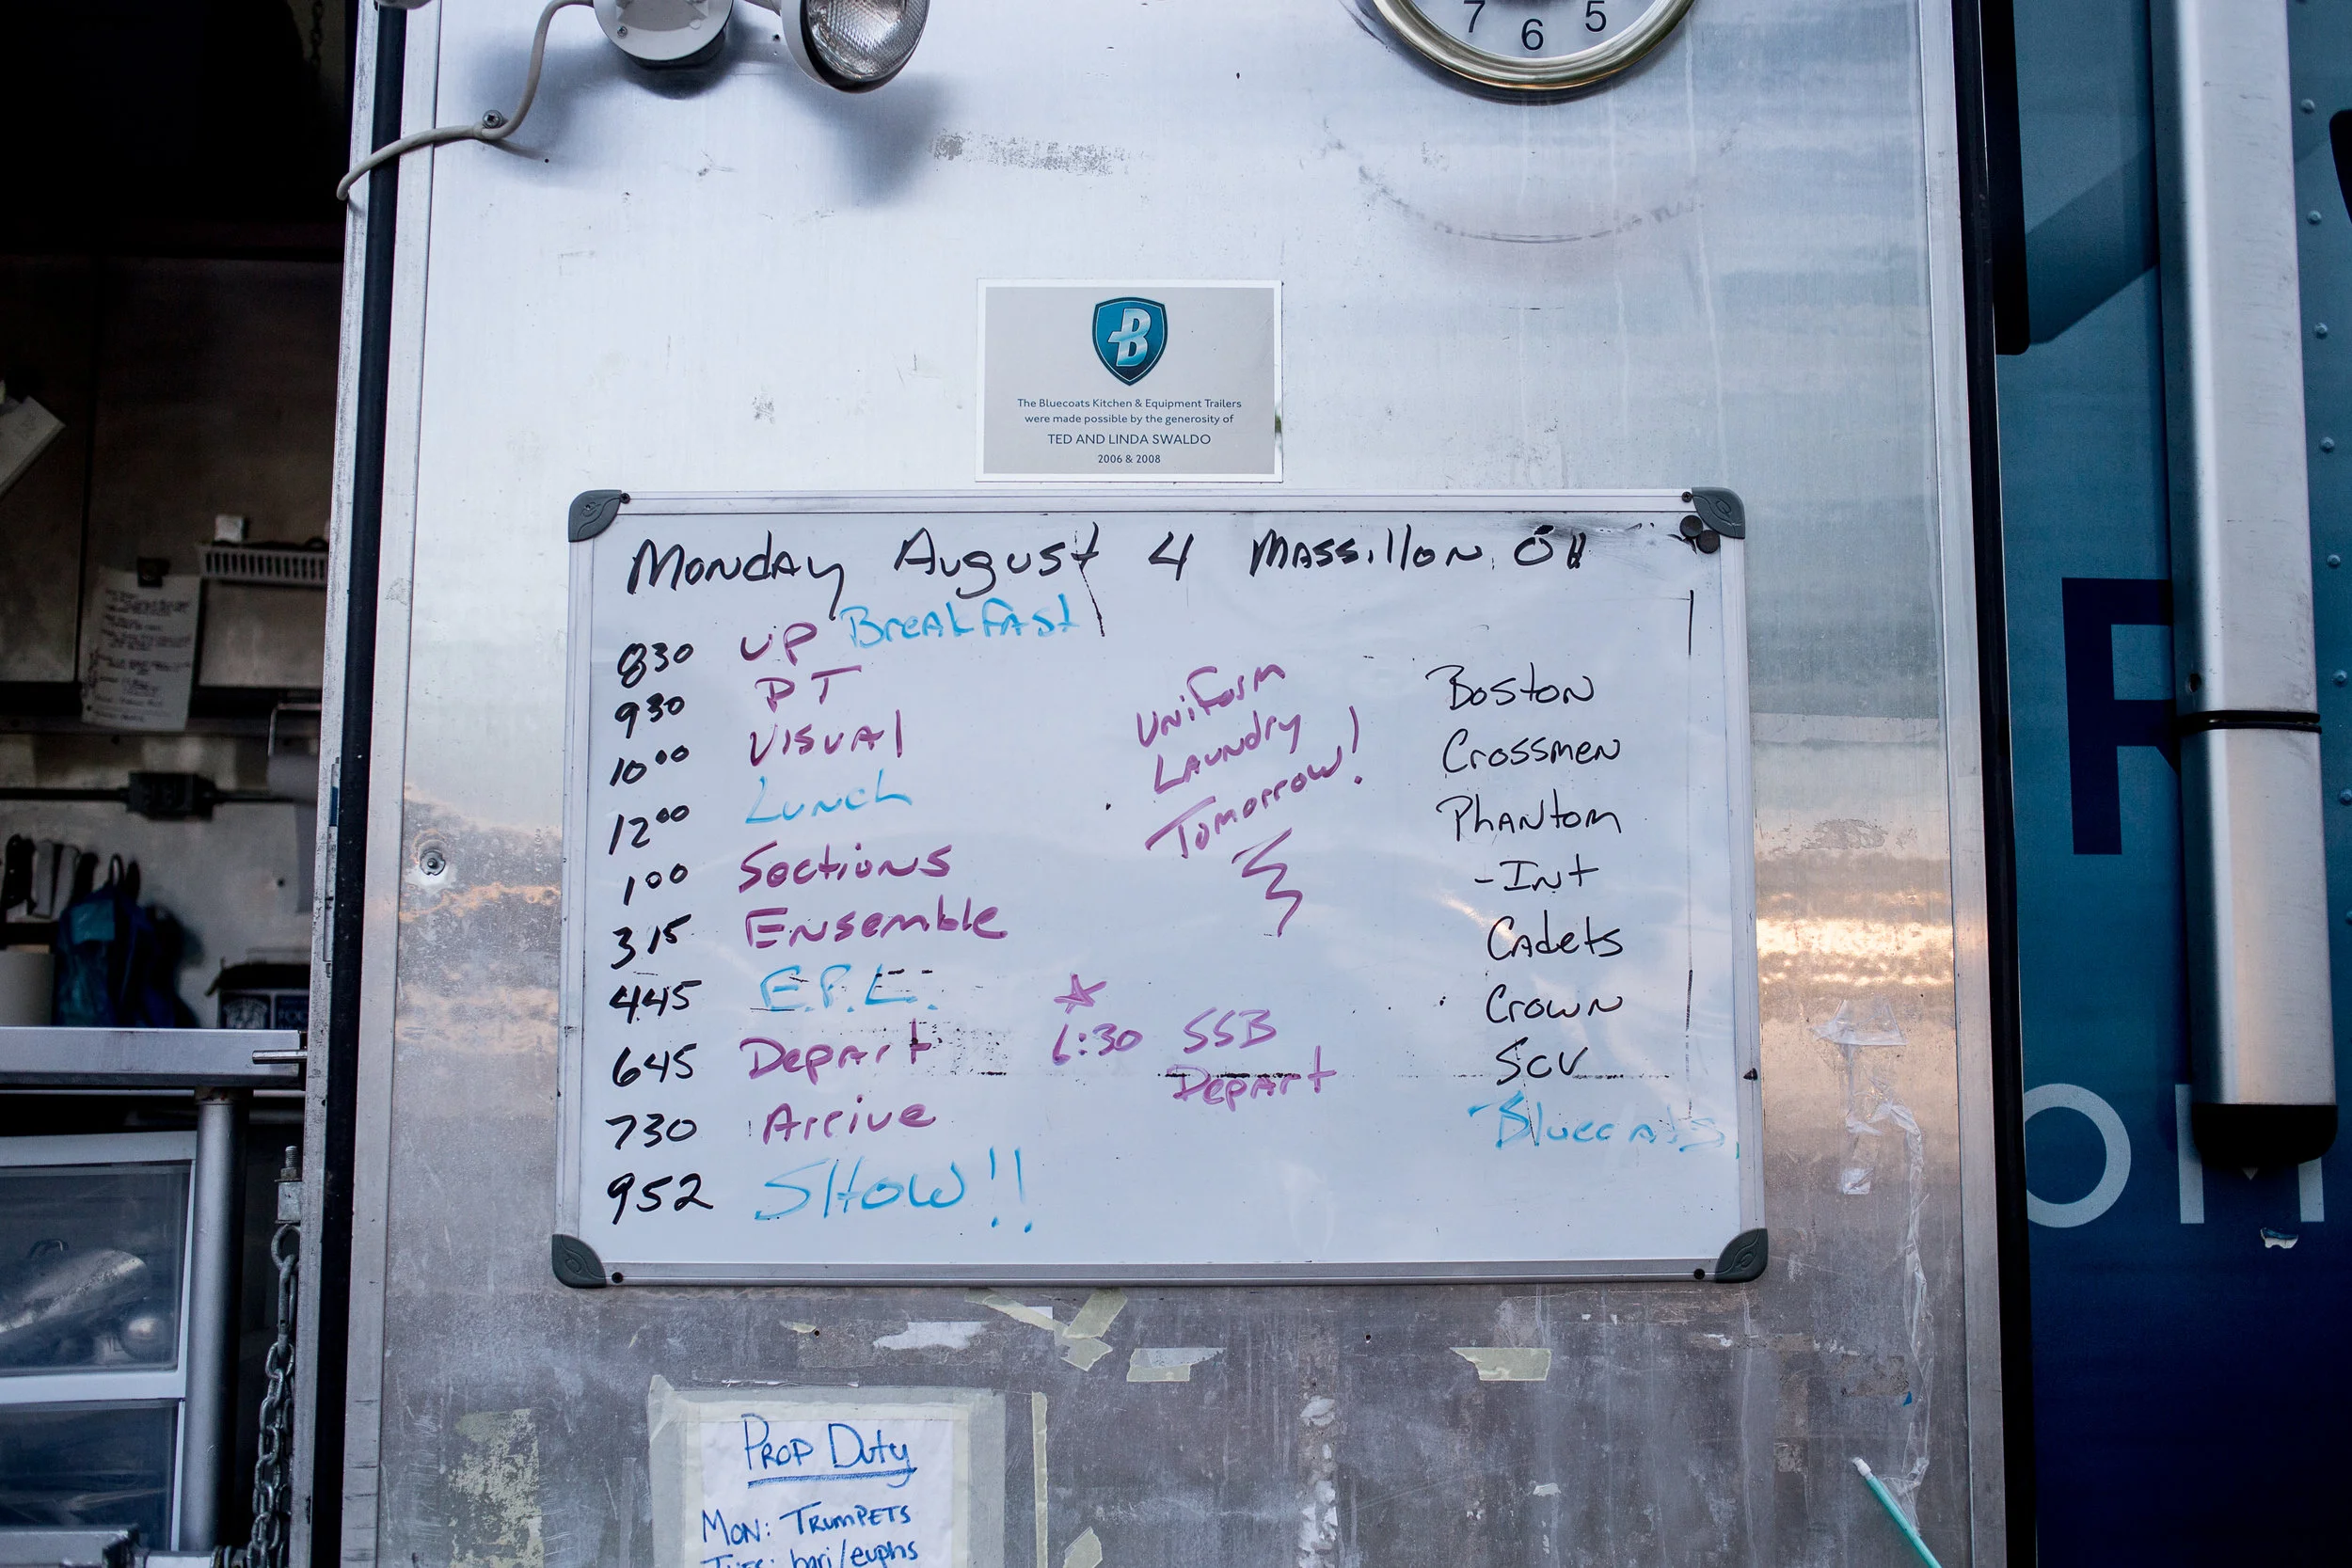 7 6 5
B
The Bluecoats Kitchen & Equipment Trailers
were made possible by the generosity of
TED AND LINDA SWALDO
2006 & 2008
Monday August 4 Massillon, OH
830 UP Breakfast
930 PT
10⁰⁰ Visual
12⁰⁰ Lunch
1⁰⁰ Sections
315 Ensemble
445 E.P.L.
645 Depart
730 Arrive
952 SHOW!!
Uniform
Laundry
Tomorrow!
☆
6:30 SSB
Depart
Boston
Crossmen
Phantom
-Int
Cadets
Crown
SCV
Bluecoats
Prop Duty
Mon: Trumpets
Tues: bari/euphs
R